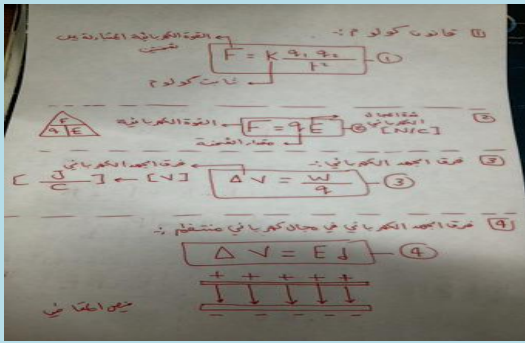 ① قانون كولوم :-
القوة الكهربائية المتبادلة بين شحنتين
F = K q₁ q₂ / r² ①
ثابت كولوم
②
F
q E
القوة الكهربائية
F = q E ②
شدة المجال الكهربائي [N/C]
مقدار الشحنة
③ فرق الجهد الكهربائي :-
فرق الجهد الكهربائي
[ J / C ] ← [V]
Δ V = W / q ③
④ فرق الجهد الكهربائي في مجال كهربائي منتظم :-
Δ V = E d ④
+ + + + +
- - - - -